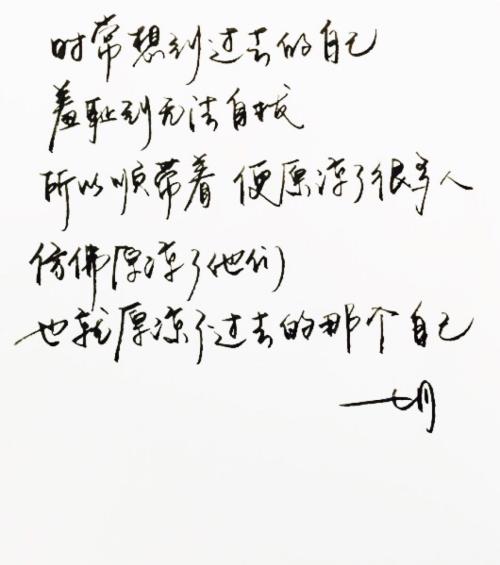 时常想到过去的自己
羞耻到无法自拔
所以顺带着便原谅了很多人
仿佛原谅了他们
也就原谅了过去的那个自己
一七月